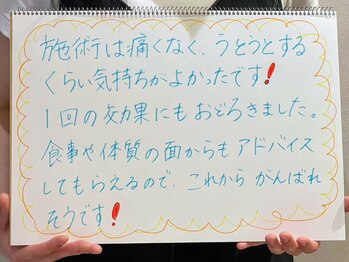 施術は痛くなく、うとうとする
くらい気持ちがよかったです!
1回の効果にもおどろきました。
食事や体質の面からもアドバイス
してもらえるので、これから がんばれ
そうです!